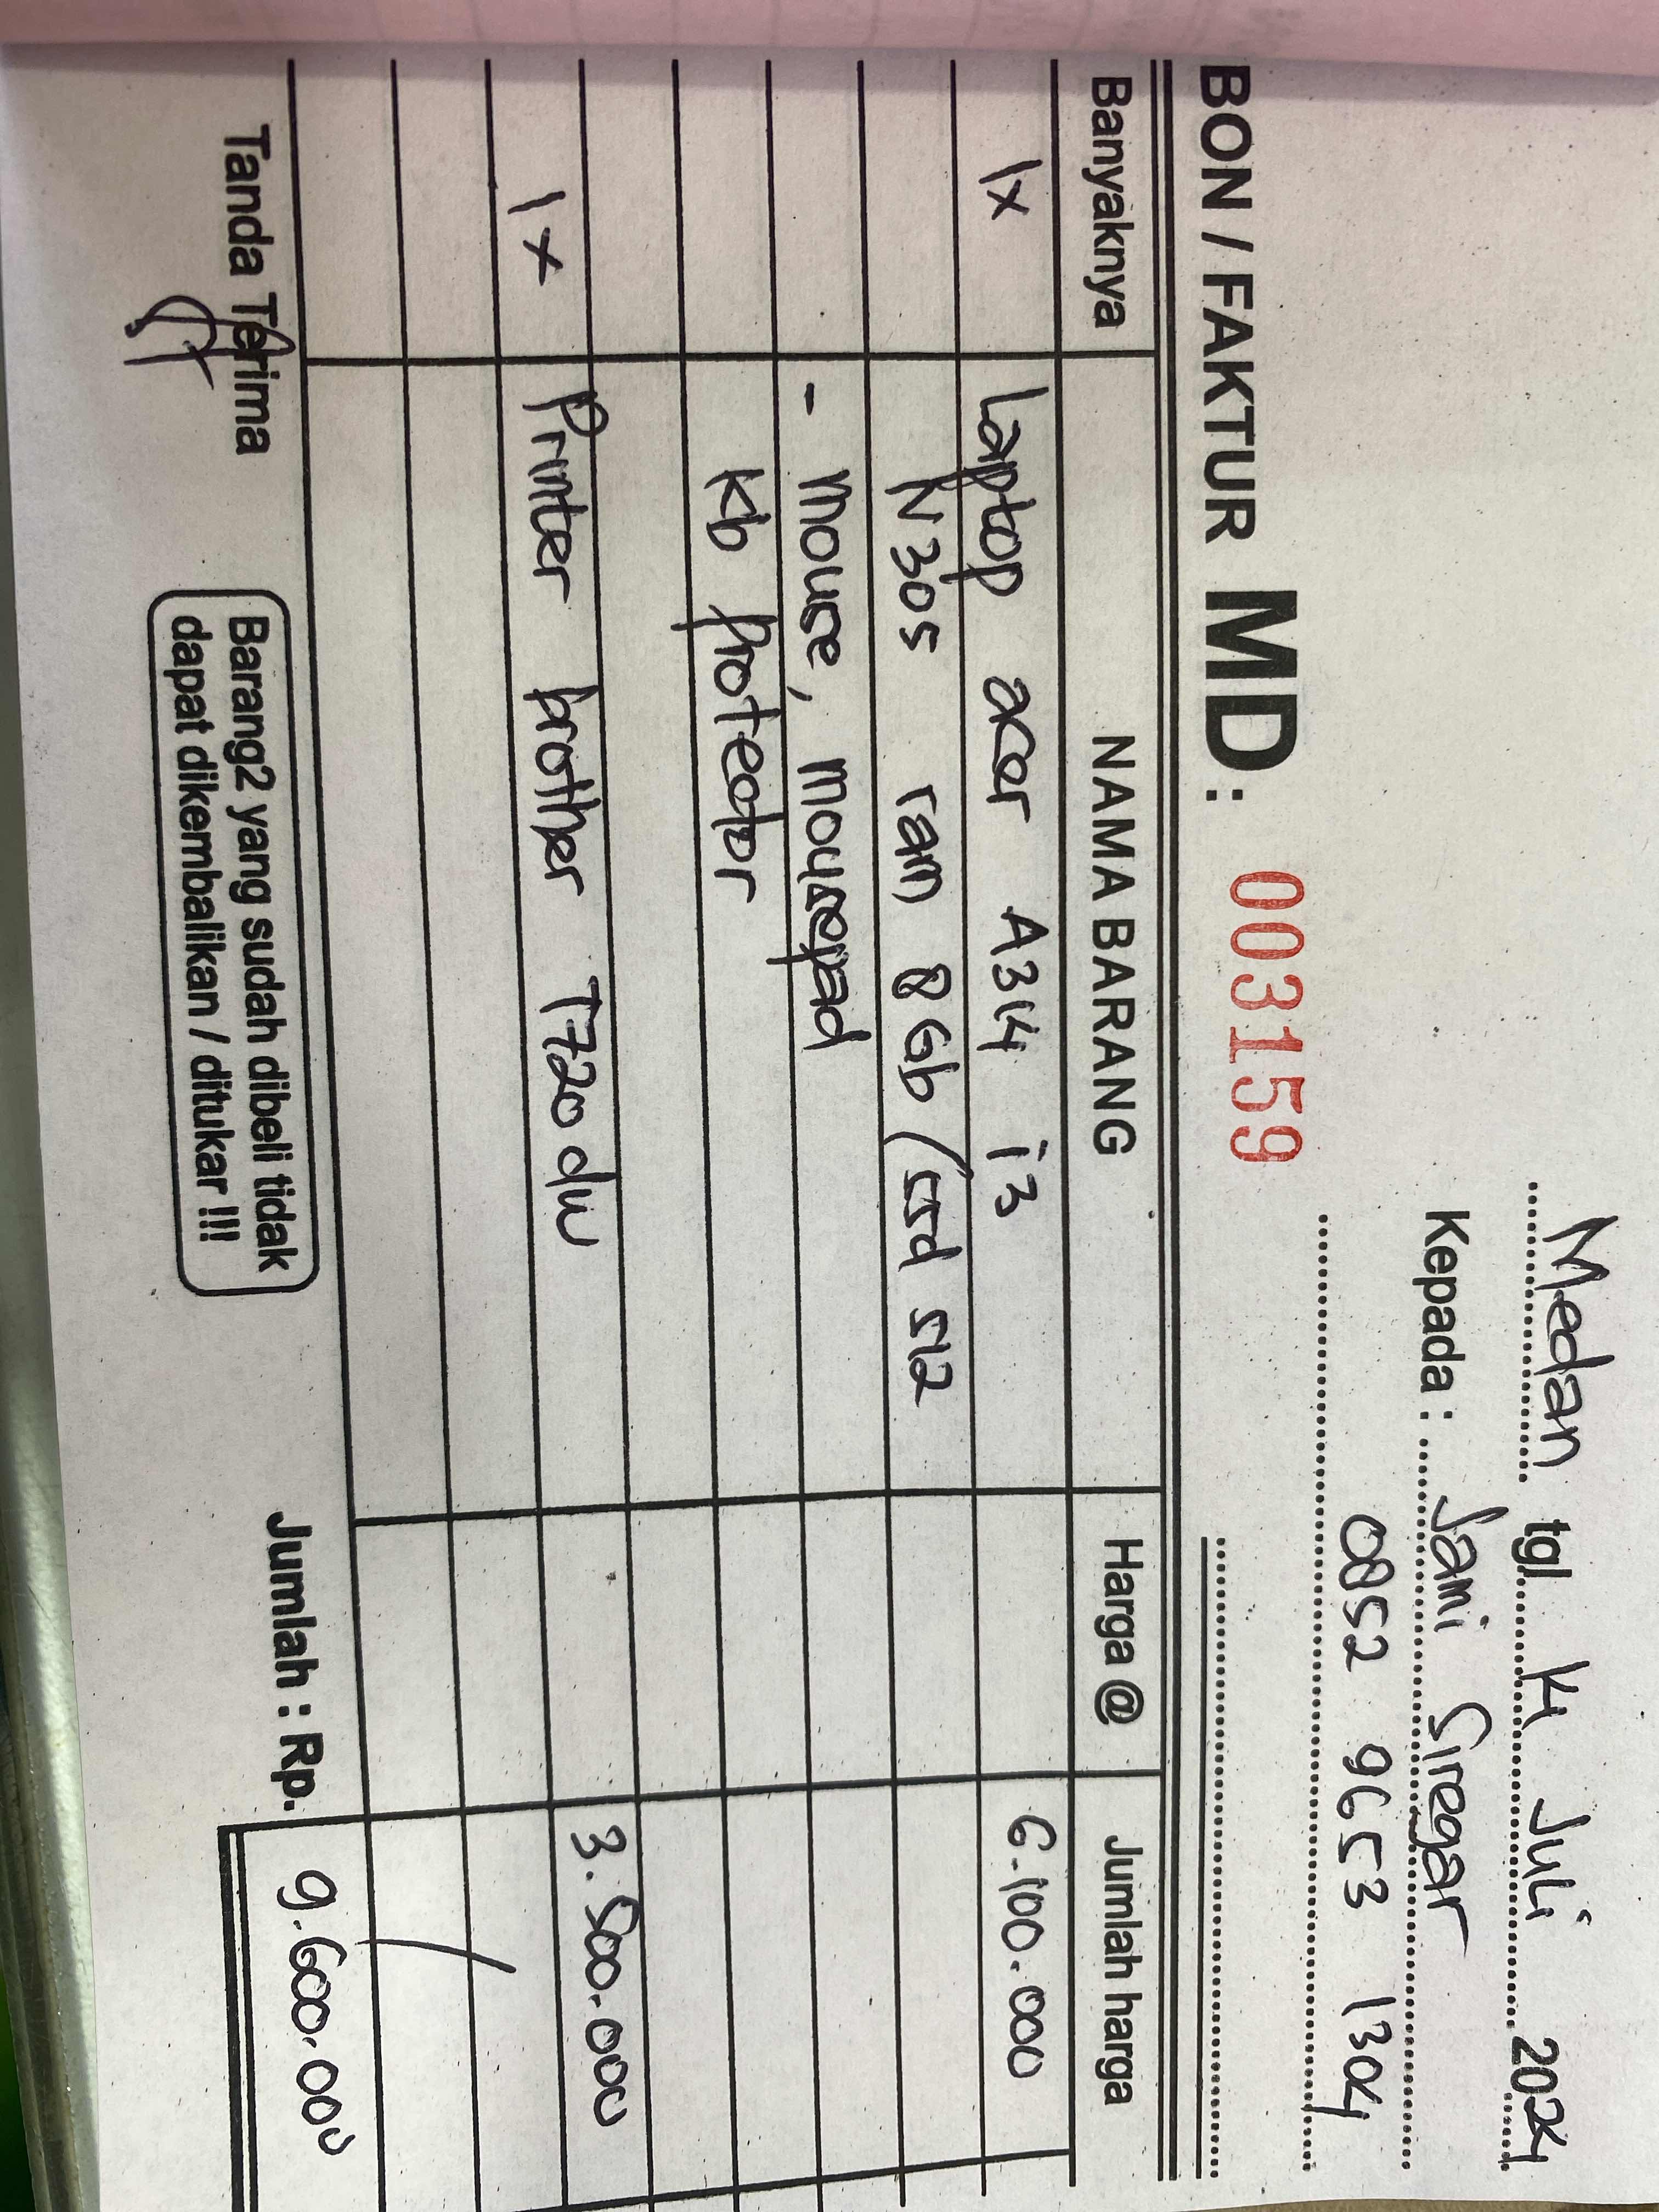 Medan tgl. 14 Juli 2024
Kepada : Jami Siregar
0852 9653 1304
BON / FAKTUR MD : 003159
Banyaknya NAMA BARANG Harga @ Jumlah harga
1x Laptop acer A314 i3 6.100.000
N305 ram 8 Gb / ssd 512
- mouse, mousepad
Kb protector
1x Printer brother T720dw 3.500.000
Tanda Terima
Barang2 yang sudah dibeli tidak
dapat dikembalikan / ditukar !!!
Jumlah : Rp. 9.600.000